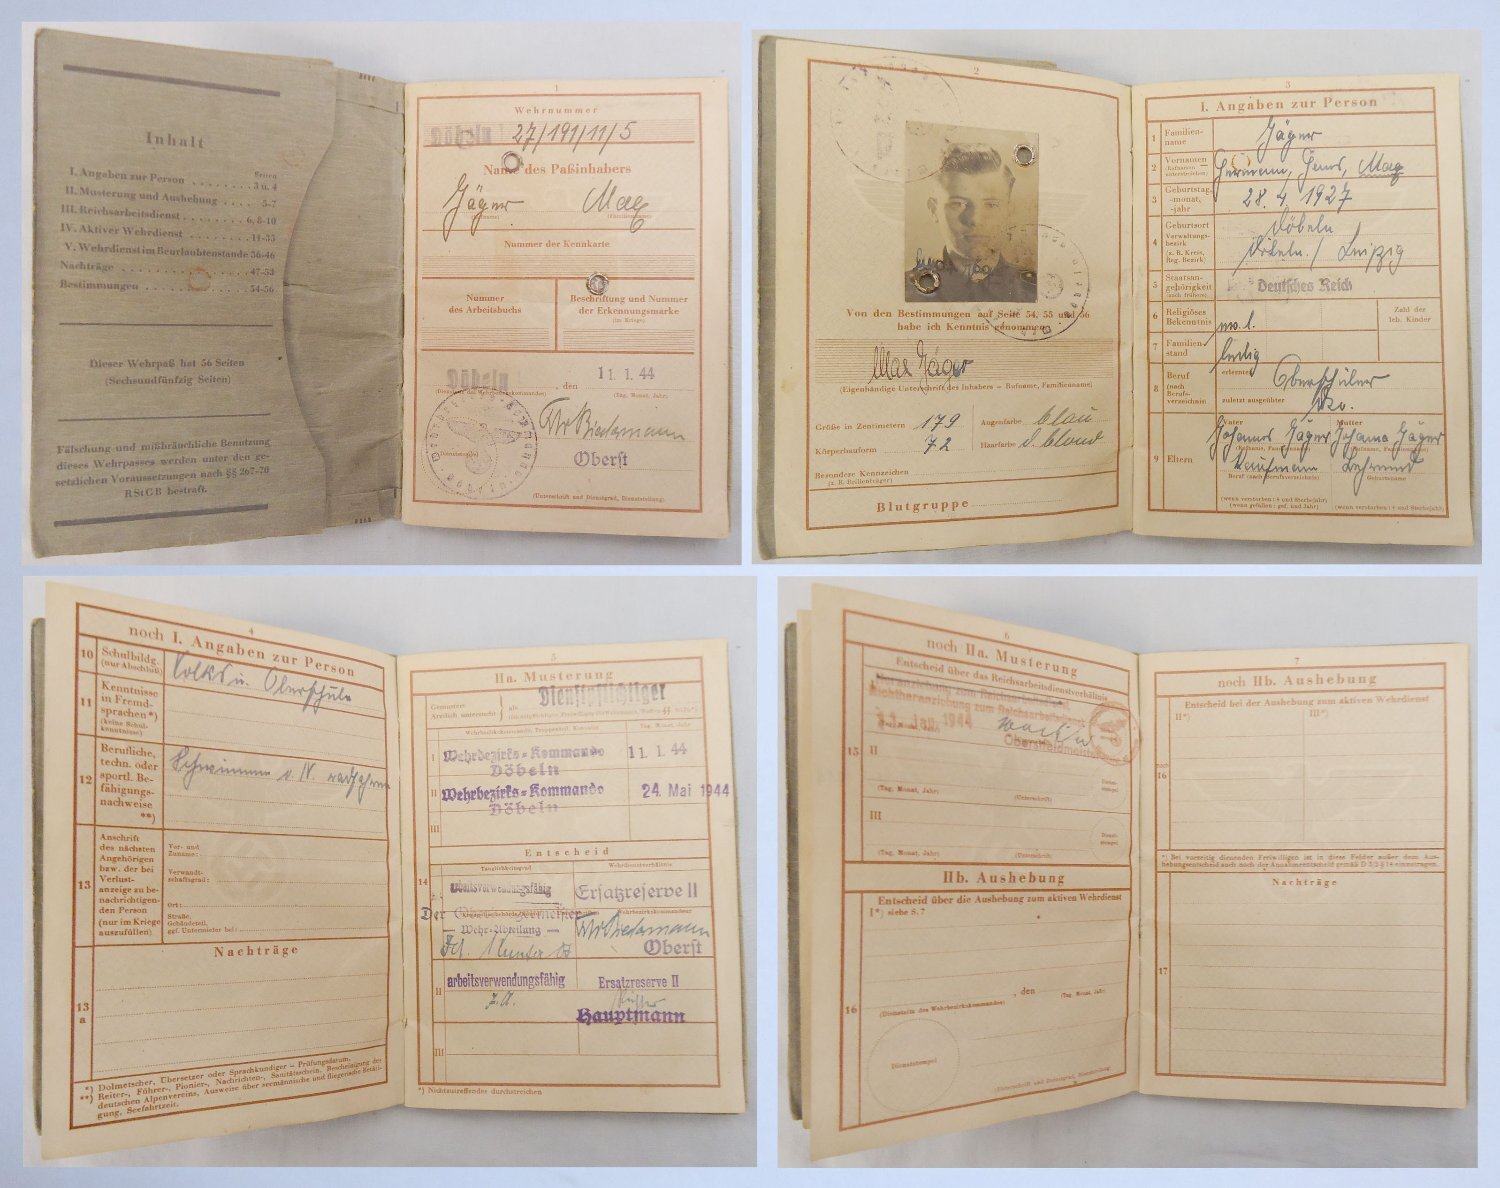 Inhalt
Seiten
I. Angaben zur Person . . . . . . . . 3 u. 4
II. Musterung und Aushebung . . . . 5-7
III. Reichsarbeitsdienst . . . . . . . . 6, 8-10
IV. Aktiver Wehrdienst . . . . . . . . 11-35
V. Wehrdienst im Beurlaubtenstande 36-46
Nachträge . . . . . . . . . . . . . 47-53
Bestimmungen . . . . . . . . . . . 54-56
Dieser Wehrpaß hat 56 Seiten
(Sechsundfünfzig Seiten)
Fälschung und mißbräuchliche Benutzung
dieses Wehrpasses werden unter den ge-
setzlichen Voraussetzungen nach §§ 267-70
RStGB bestraft.
1
Wehrnummer
27/191/11/5
Name des Paßinhabers
Jäger Max
Nummer der Kennkarte
Nummer
des Arbeitsbuchs
Beschriftung und Nummer
der Erkennungsmarke
(im Kriege)
Döbeln, den 11. 1. 44
(Dienststelle des Wehrbezirkskommandos) (Tag, Monat, Jahr)
Oberst
(Unterschrift und Dienstgrad, Dienststellung)
2
Von den Bestimmungen auf Seite 54, 55 und 56
habe ich Kenntnis genommen
Max Jäger
(Eigenhändige Unterschrift des Inhabers – Rufname, Familienname)
Größe in Zentimetern 179 Augenfarbe blau
Körperbauform 72 Haarfarbe d. blond
Besondere Kennzeichen
(z. B. Brillenträger)
Blutgruppe
3
I. Angaben zur Person
1 Familien-
name
Jäger
2 Vornamen
(Rufnamen
unterstreichen)
Hermann, Hans, Max
3 Geburtstag,
-monat,
-jahr
28. 4. 1927
4 Geburtsort
Verwaltungs-
bezirk
(z. B. Kreis,
Reg. Bezirk)
Döbeln
Döbeln / Leipzig
5 Staatsan-
gehörigkeit
(auch frühere)
Deutsches Reich
6 Religiöses
Bekenntnis
ev. l.
Zahl der
leb. Kinder
7 Familien-
stand
ledig
8 Beruf
(nach
Berufs-
verzeichnis)
erlernter
Oberschüler
zuletzt ausgeübter
dto.
9 Eltern
Vater Mutter
Johannes Jäger Johanna Jäger
(Rufname, Familienname)
Kaufmann
Beruf (nach Berufsverzeichnis) Geburtsname
(wenn verstorben: † und Sterbejahr)
(wenn gefallen: gef. und Jahr)
(wenn verstorben: † und Sterbejahr)
4
noch I. Angaben zur Person
10 Schulbildg.
(nur Abschluß)
Volks u. Oberschule
11 Kenntnisse
in Fremd-
sprachen*)
(keine Schul-
kenntnisse)
12 Berufliche,
techn. oder
sportl. Be-
fähigungs-
nachweise
**)
Schwimmen u. radfahren
13 Anschrift
des nächsten
Angehörigen
bzw. der bei
Verlust-
anzeige zu be-
nachrichtigen-
den Person
(nur im Kriege
auszufüllen)
Vor- und
Zuname:
Verwandt-
schaftsgrad:
Ort:
Straße,
Gebäudeteil,
ggf. Untermieter bei:
Nachträge
13
a
*) Dolmetscher, Übersetzer oder Sprachkundiger – Prüfungsdatum.
**) Reiter-, Führer-, Pionier-, Nachrichten-, Sanitätsschein, Bescheinigung des
deutschen Alpenvereins, Ausweise über seemännische und fliegerische Betäti-
gung, Seefahrtzeit.
5
IIa. Musterung
Gemustert
Ärztlich untersucht
als
Dienstpflichtiger
Tag, Monat, Jahr
I Wehrbezirks-Kommando
Döbeln
11. 1. 44
II Wehrbezirks-Kommando
Döbeln
24. Mai 1944
III
Entscheid
Tauglichkeitsgrad Wehrdienstverhältnis
14
arbeitsverwendungsfähig
Ersatzreserve II
Der
— Wehr-Abteilung —
Oberst
II arbeitsverwendungsfähig
Ersatzreserve II
Hauptmann
III
*) Nichtzutreffendes durchstreichen
6
noch IIa. Musterung
Entscheid über das Reichsarbeitsdienstverhältnis
Nichtheranziehung zum Reichsarbeitsdienst
11. Jan. 1944
Oberstfeldmeister
15 II
(Tag, Monat, Jahr) (Unterschrift)
Dienst-
stempel
III
(Tag, Monat, Jahr) (Unterschrift)
Dienst-
stempel
IIb. Aushebung
Entscheid über die Aushebung zum aktiven Wehrdienst
I*) siehe S. 7
16
, den
(Dienststelle des Wehrbezirkskommandos) (Tag, Monat, Jahr)
Dienststempel
(Unterschrift und Dienstgrad, Dienststellung)
7
noch IIb. Aushebung
Entscheid bei der Aushebung zum aktiven Wehrdienst
II*) III*)
noch
16
*) Bei vorzeitig dienenden Freiwilligen ist in diese Felder außer dem Aus-
hebungsentscheid auch noch der Annahmeentscheid gemäß D 3/2 § 14 einzutragen.
Nachträge
17